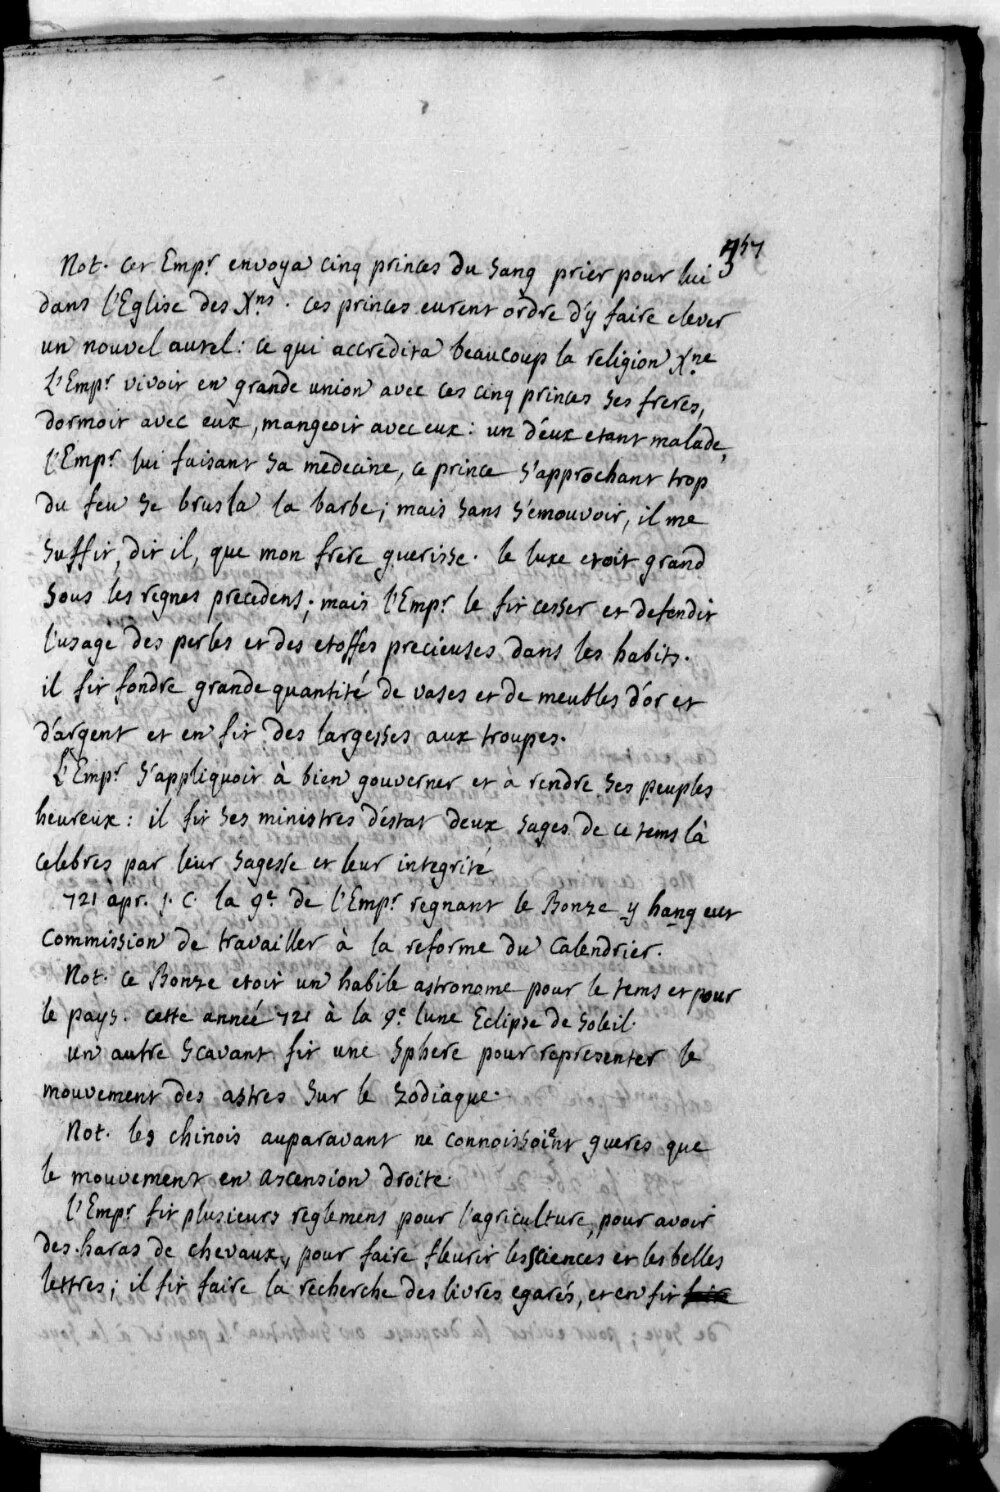 357
Not. cet Emp.r envoya cinq princes du sang prier pour lui
dans l'Eglise des X.ns. ces princes eurent ordre d'y faire elever
un nouvel autel: ce qui accredita beaucoup la religion X.ne
L'Emp.r vivoit en grande union avec ces cinq princes ses freres,
dormoit avec eux, mangeoit avec eux: un d'eux etant malade,
l'Emp.r lui faisant sa medecine, ce prince s'approchant trop
du feu se brusla la barbe; mais sans s'emouvoir, il me
suffit, dit il, que mon frere guerisse. le luxe etoit grand
sous les regnes precedens; mais l'Emp.r le fit cesser et defendit
l'usage des perles et des etoffes precieuses dans les habits.
il fit fondre grande quantité de vases et de meubles d'or et
d'argent et en fit des largesses aux troupes.
L'Emp.r s'appliquoit à bien gouverner et à rendre ses peuples
heureux: il fit ses ministres d'éstat deux sages de ce tems là
celebres par leur sagesse et leur integrité
721 apr. J. C. la 9.e de l'Emp.r regnant le Bonze y hang eut
commission de travailler à la reforme du calendrier.
Not. ce Bonze etoit un habile astronome pour le tems et pour
le pays. cette année 721 à la 9.e lune Eclipse de soleil.
un autre scavant fit une sphere pour representer le
mouvement des astres sur le zodiaque.
Not. les chinois auparavant ne connoissoient gueres que
le mouvement en ascension droite.
l'Emp.r fit plusieurs reglemens pour l'agriculture, pour avoir
des haras de chevaux, pour faire fleurir les sciences et les belles
lettres; il fit faire la recherche des livres egarés, et en fit